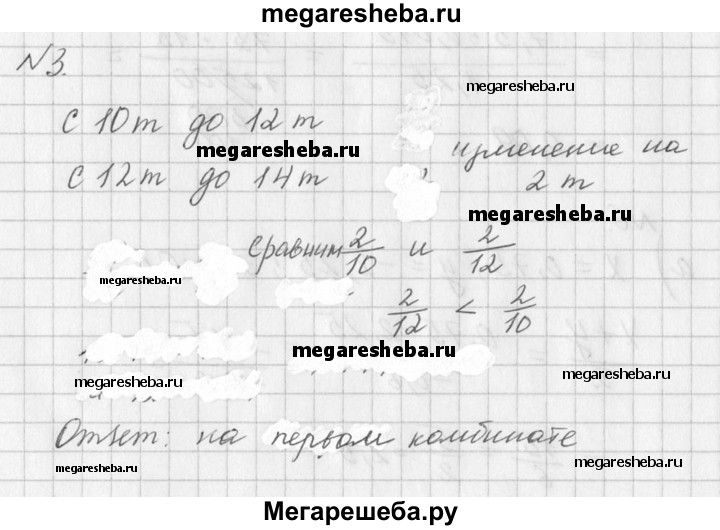 megaresheba.ru
N3.
megaresheba.ru
с 10т до 12т
megaresheba.ru
изменение на
с 12т до 14т
2т
megaresheba.ru
Сравним 2/10 и 2/12
megaresheba.ru
2/12 < 2/10
megaresheba.ru
megaresheba.ru
megaresheba.ru
Ответ: на первом комбинате
megaresheba.ru
megaresheba.ru
Мегарешеба.ру